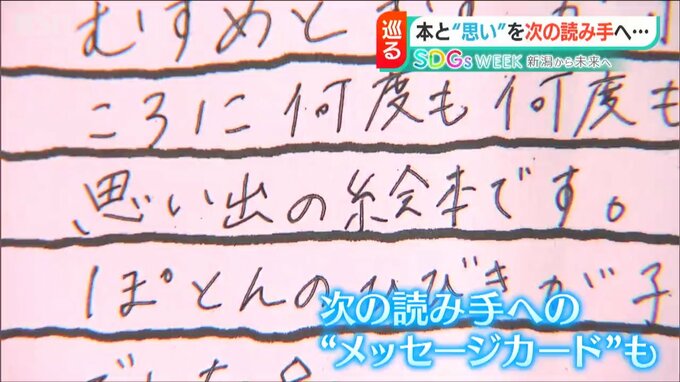 巡る
本と“思い”を次の読み手へ…
SDGs WEEK 新潟から未来へ
むすめと
ころに何度も何度も
思い出の絵本です。
ぽとんのひびきが子
次の読み手への
“メッセージカード”も